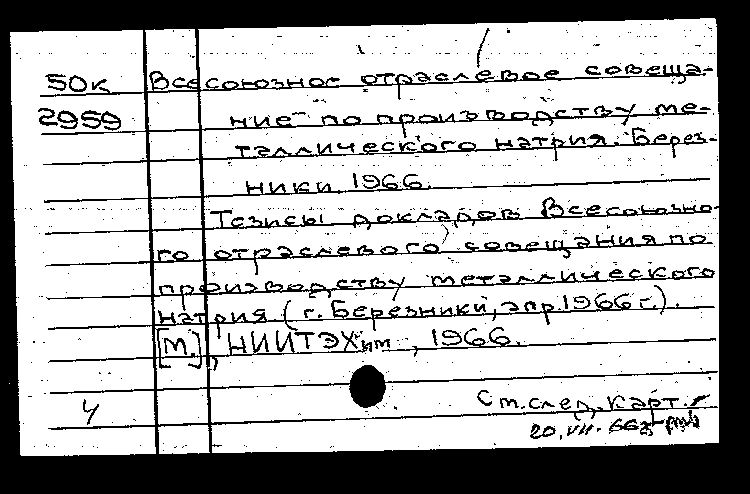 50к Всесоюзное отраслевое совеща-
2959 ние по производству ме-
таллического натрия. Берез-
ники. 1966.
Тезисы докладов Всесоюзно-
го отраслевого совещания по
производству металлического
натрия (г. Березники, апр. 1966 г.).
[М.], НИИТЭХим, 1966.
Ч Ст. след. карт.
20.VII.66